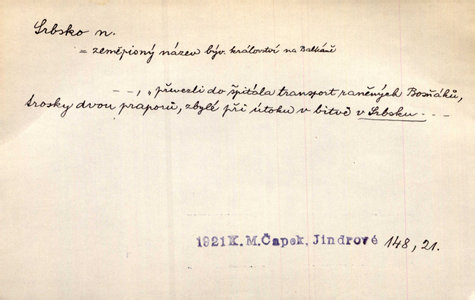 Srbsko n.
= zeměpisný název býv. království na Balkáně
– –, „přivezli do špitála transport raněných Bosňáků,
trosky dvou praporů, zbylé při útoku v bitvě v Srbsku – – –
1921 K. M. Čapek, Jindrové 148, 21.